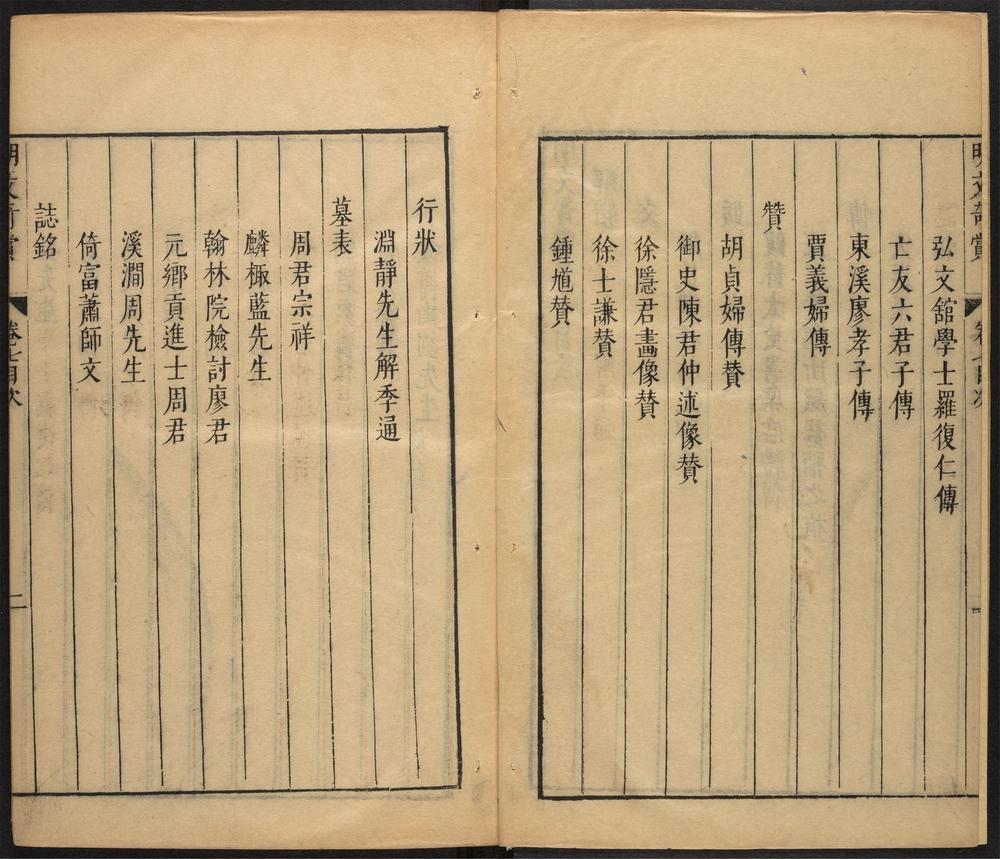 明文奇賞
卷七目次
一
弘文舘學士羅復仁傳
亡友六君子傳
東溪廖孝子傳
賈義婦傳
贊
胡貞婦傳賛
御史陳君仲述像賛
徐隱君畵像賛
徐士謙賛
鍾馗賛
行狀
淵靜先生解季通
墓表
周君宗祥
麟樞藍先生
翰林院檢討廖君
元鄉貢進士周君
溪澗周先生
倚富蕭師文
誌銘
明文奇賞
卷七目次
二